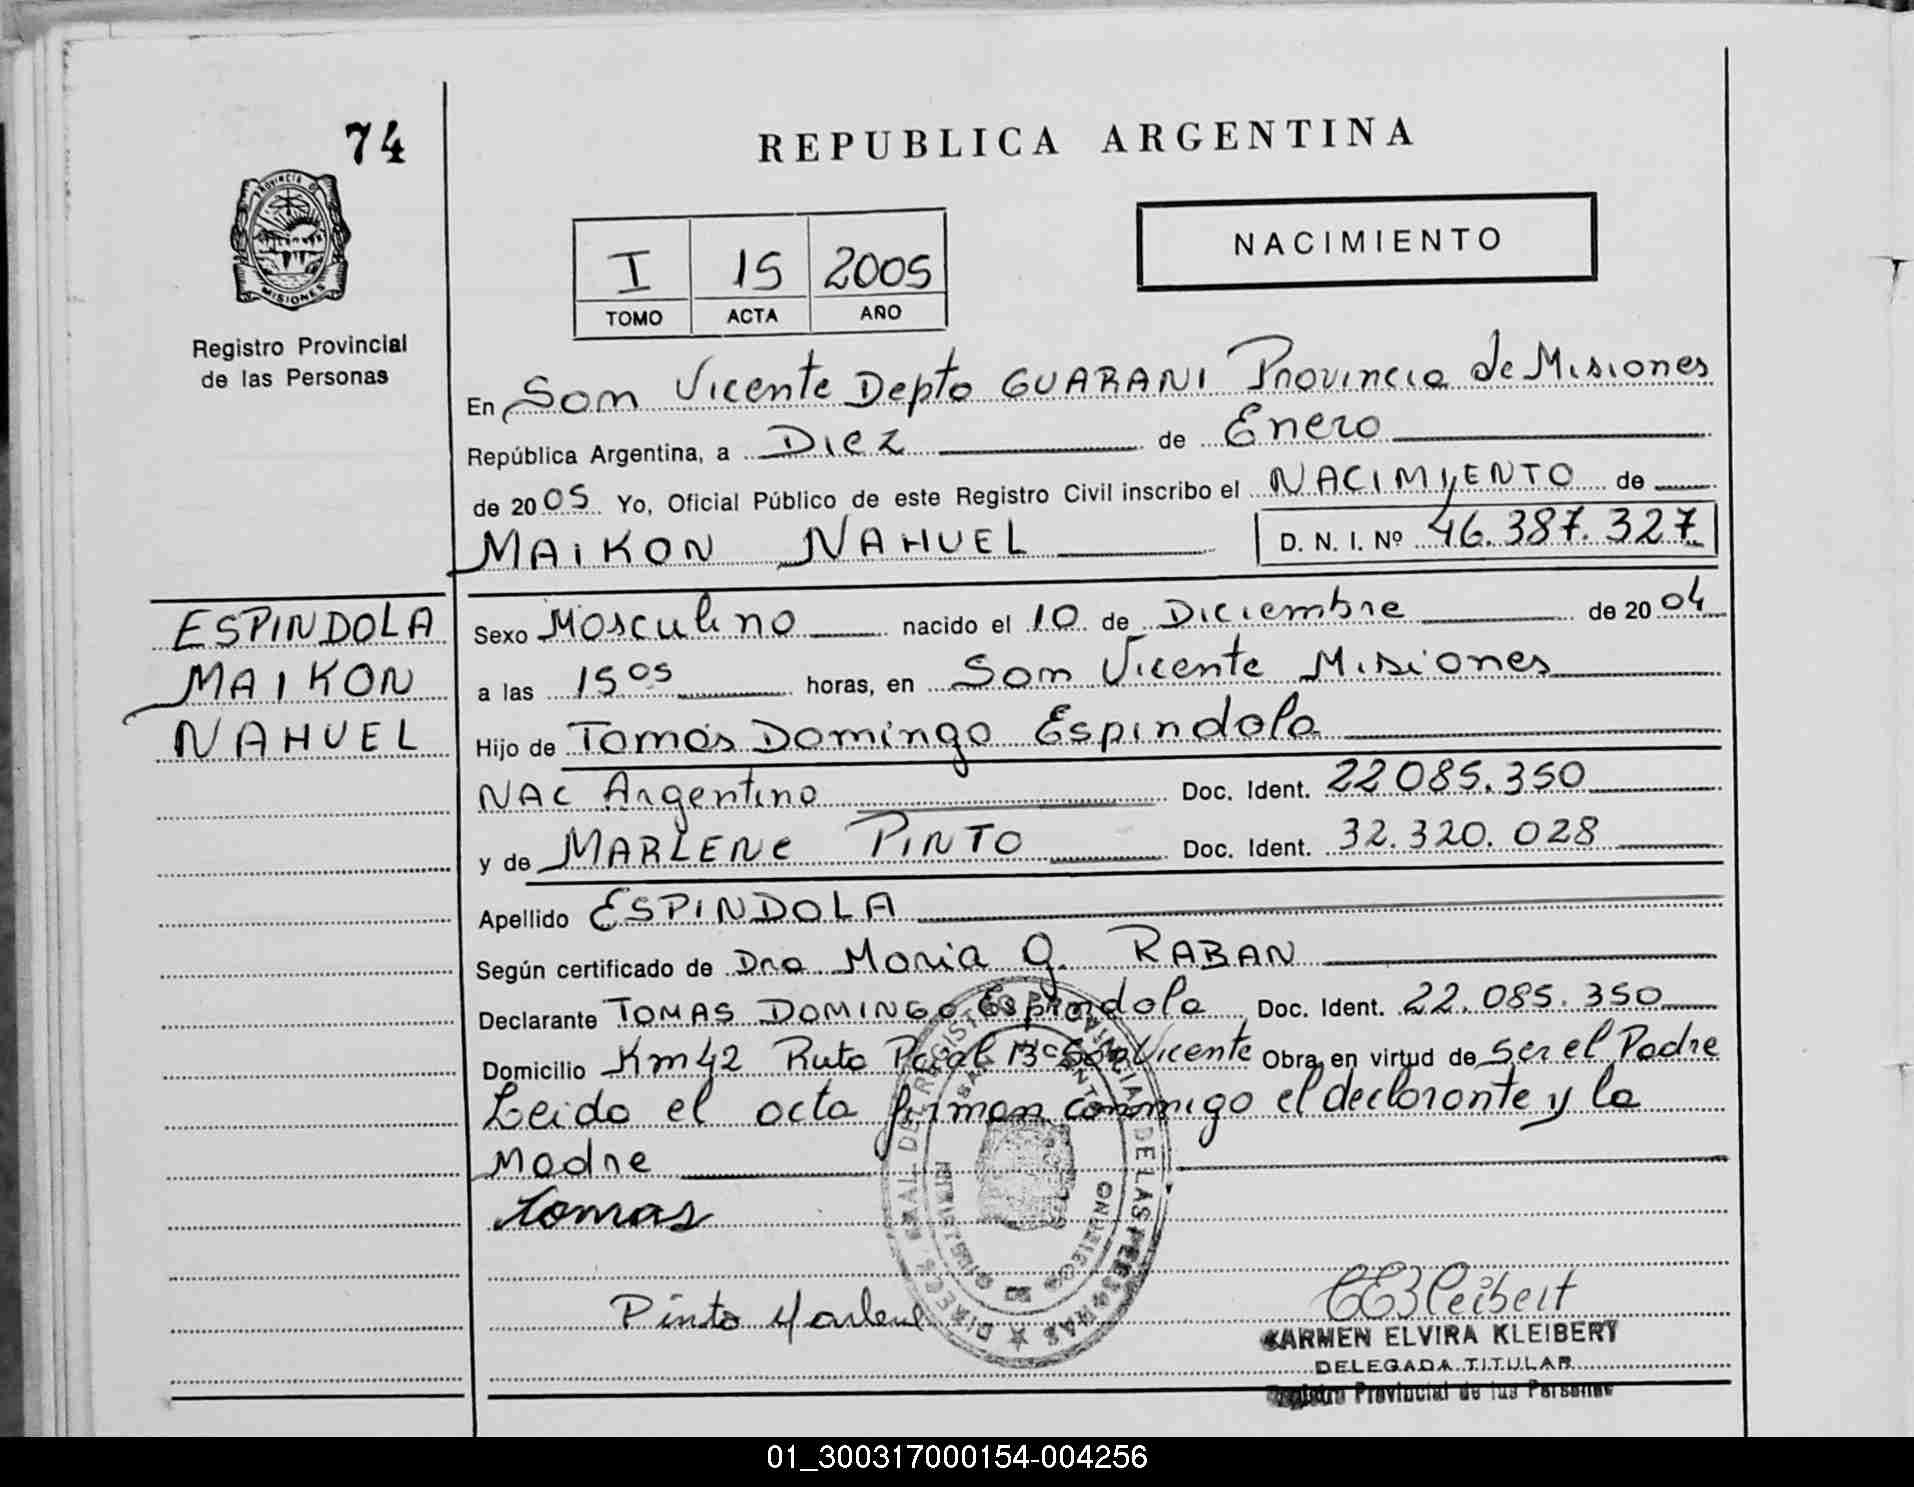 74
PROVINCIA DE
MISIONES
Registro Provincial
de las Personas
REPUBLICA ARGENTINA
I 15 2005
TOMO ACTA AÑO
NACIMIENTO
En San Vicente Depto GUARANI Provincia de Misiones
República Argentina, a Diez de Enero
de 2005 Yo, Oficial Público de este Registro Civil inscribo el NACIMIENTO de
MAIKON NAHUEL D. N. I. Nº 46.387.327
ESPINDOLA
MAIKON
NAHUEL
Sexo Masculino nacido el 10 de Diciembre de 2004
a las 15 05 horas, en San Vicente Misiones
Hijo de Tomás Domingo Espindola
NAC Argentino Doc. Ident. 22085.350
y de MARLENE PINTO Doc. Ident. 32.320.028
Apellido ESPINDOLA
Según certificado de Dra Maria G. RABAN
Declarante TOMAS DOMINGO Espindola Doc. Ident. 22.085.350
Domicilio Km 42 Ruta Pcial 13 San Vicente Obra en virtud de ser el Padre
Leido el acta firman conmigo el declarante y la
Madre
tomas
Pinto Marlene
CEKleibert
KARMEN ELVIRA KLEIBERT
DELEGADA TITULAR
Registro Provincial de las Personas
01_300317000154-004256